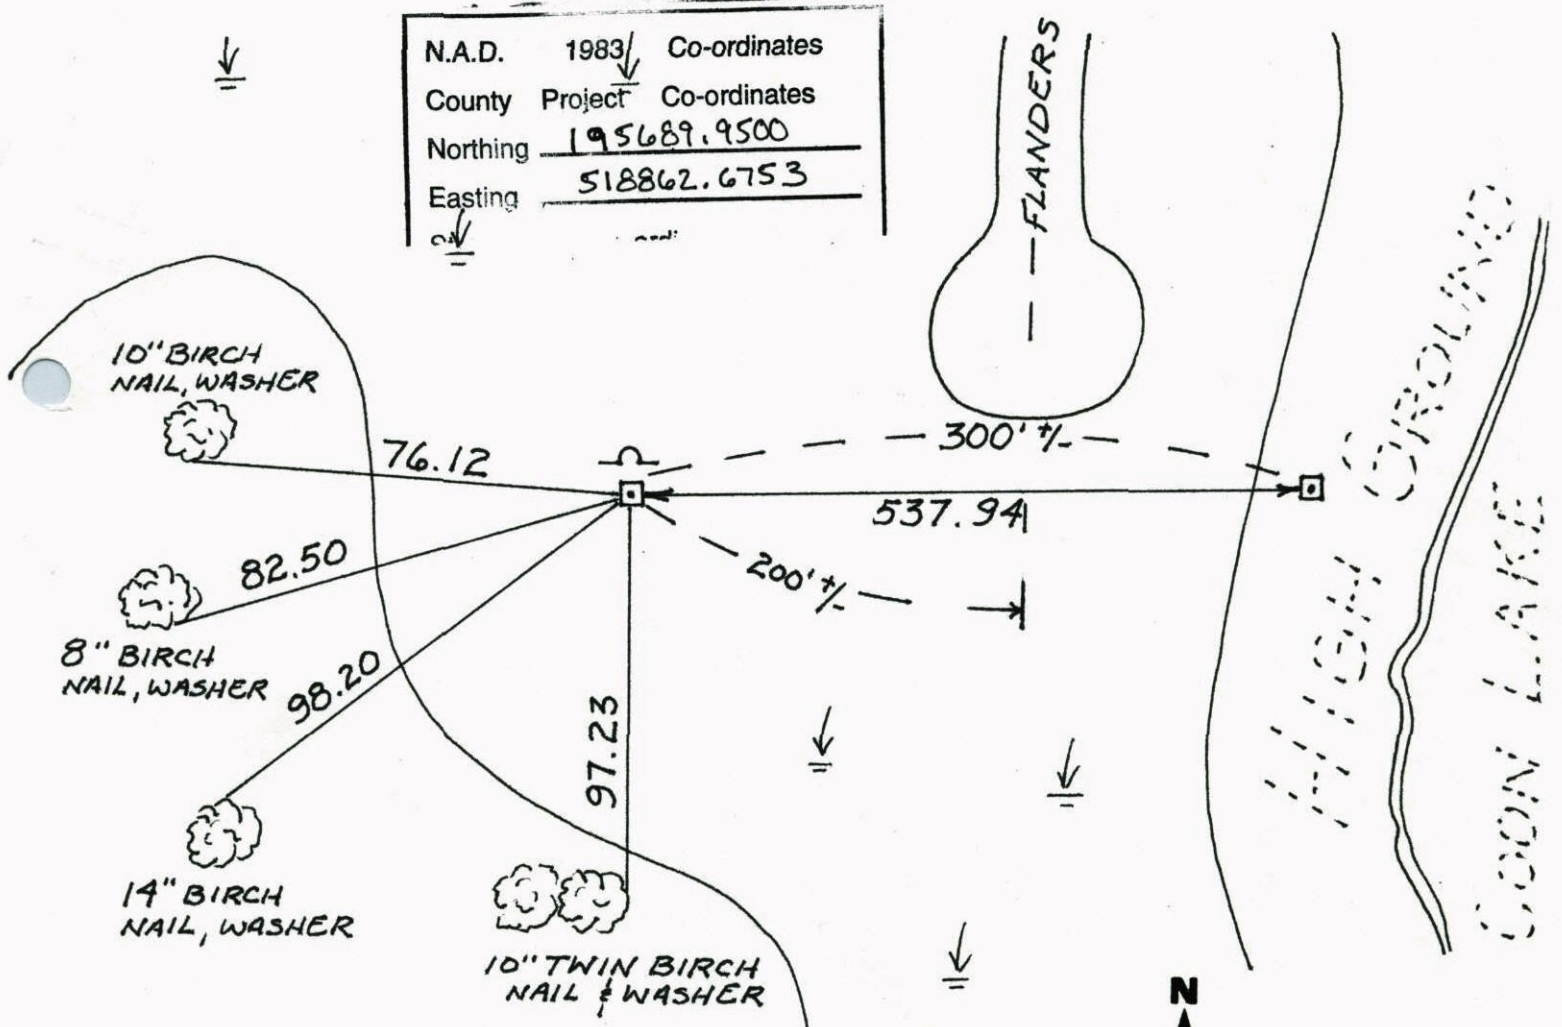 N.A.D. 1983 Co-ordinates
County Project Co-ordinates
Northing 195689.9500
Easting 518862.6753
FLANDERS
10" BIRCH
NAIL, WASHER
76.12
300' +/-
537.94
82.50
200' +/-
8" BIRCH
NAIL, WASHER
98.20
97.23
14" BIRCH
NAIL, WASHER
10" TWIN BIRCH
NAIL & WASHER
HIGH GROUND
COON LAKE
N